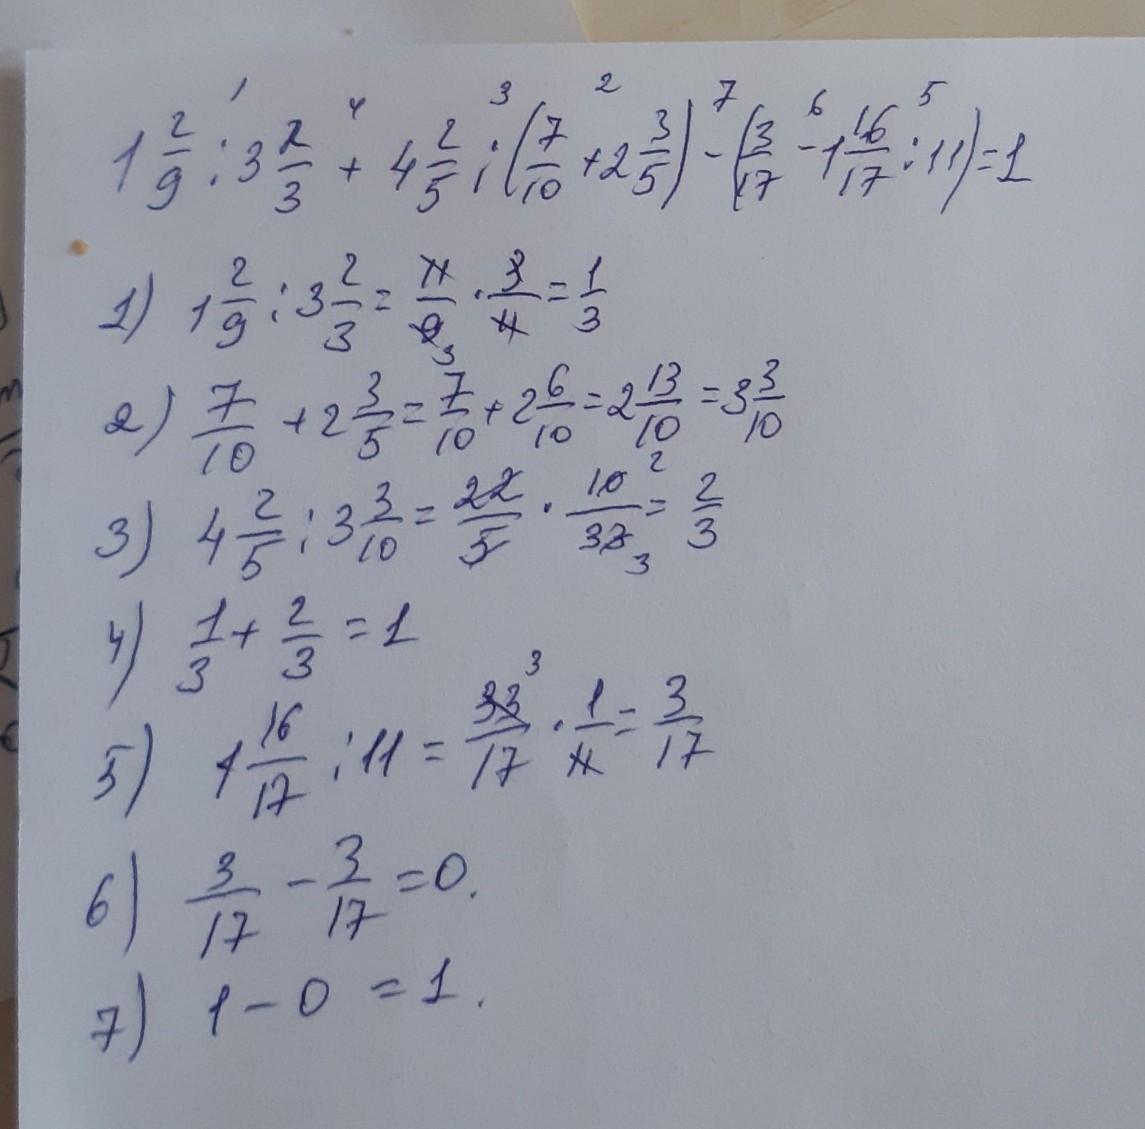 1 2/9 : 3 2/3 + 4 2/5 : (7/10 + 2 3/5) - (3/17 - 1 16/17 : 11) = 1
1) 1 2/9 : 3 2/3 = 11/9 · 3/11 = 1/3
2) 7/10 + 2 3/5 = 7/10 + 2 6/10 = 2 13/10 = 3 3/10
3) 4 2/5 : 3 3/10 = 22/5 · 10/33 = 2/3
4) 1/3 + 2/3 = 1
5) 1 16/17 : 11 = 33/17 · 1/11 = 3/17
6) 3/17 - 3/17 = 0.
7) 1 - 0 = 1.